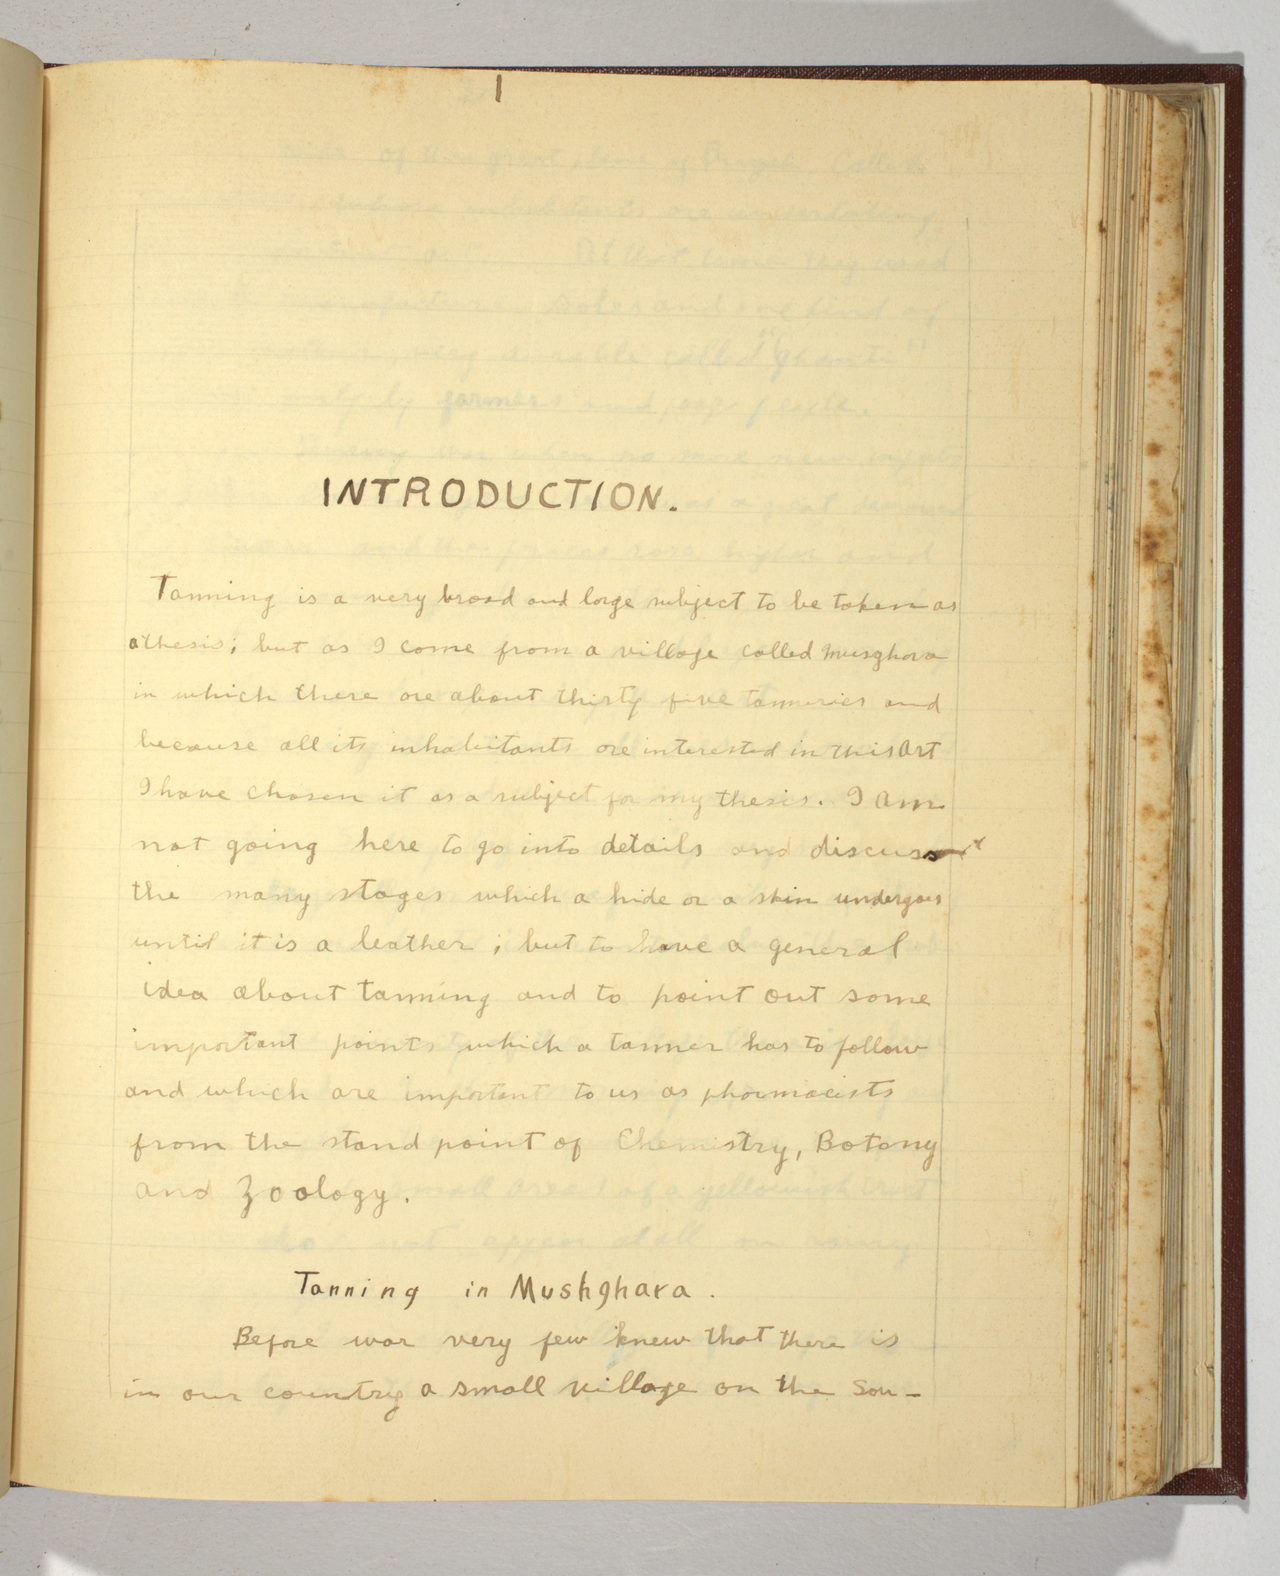 1
INTRODUCTION.
Tanning is a very broad and large subject to be taken as
a thesis; but as I come from a village called Musghara
in which there are about thirty five tanneries and
because all its inhabitants are interested in this Art
I have chosen it as a subject for my thesis. I am
not going here to go into details and discuss
the many stages which a hide or a skin undergoes
until it is a leather; but to have a general
idea about tanning and to point out some
important points which a tanner has to follow
and which are important to us as pharmacists
from the stand point of Chemistry, Botany
and Zoology.
Tanning in Mushghara.
Before war very few knew that there is
in our country a small village on the Sou-